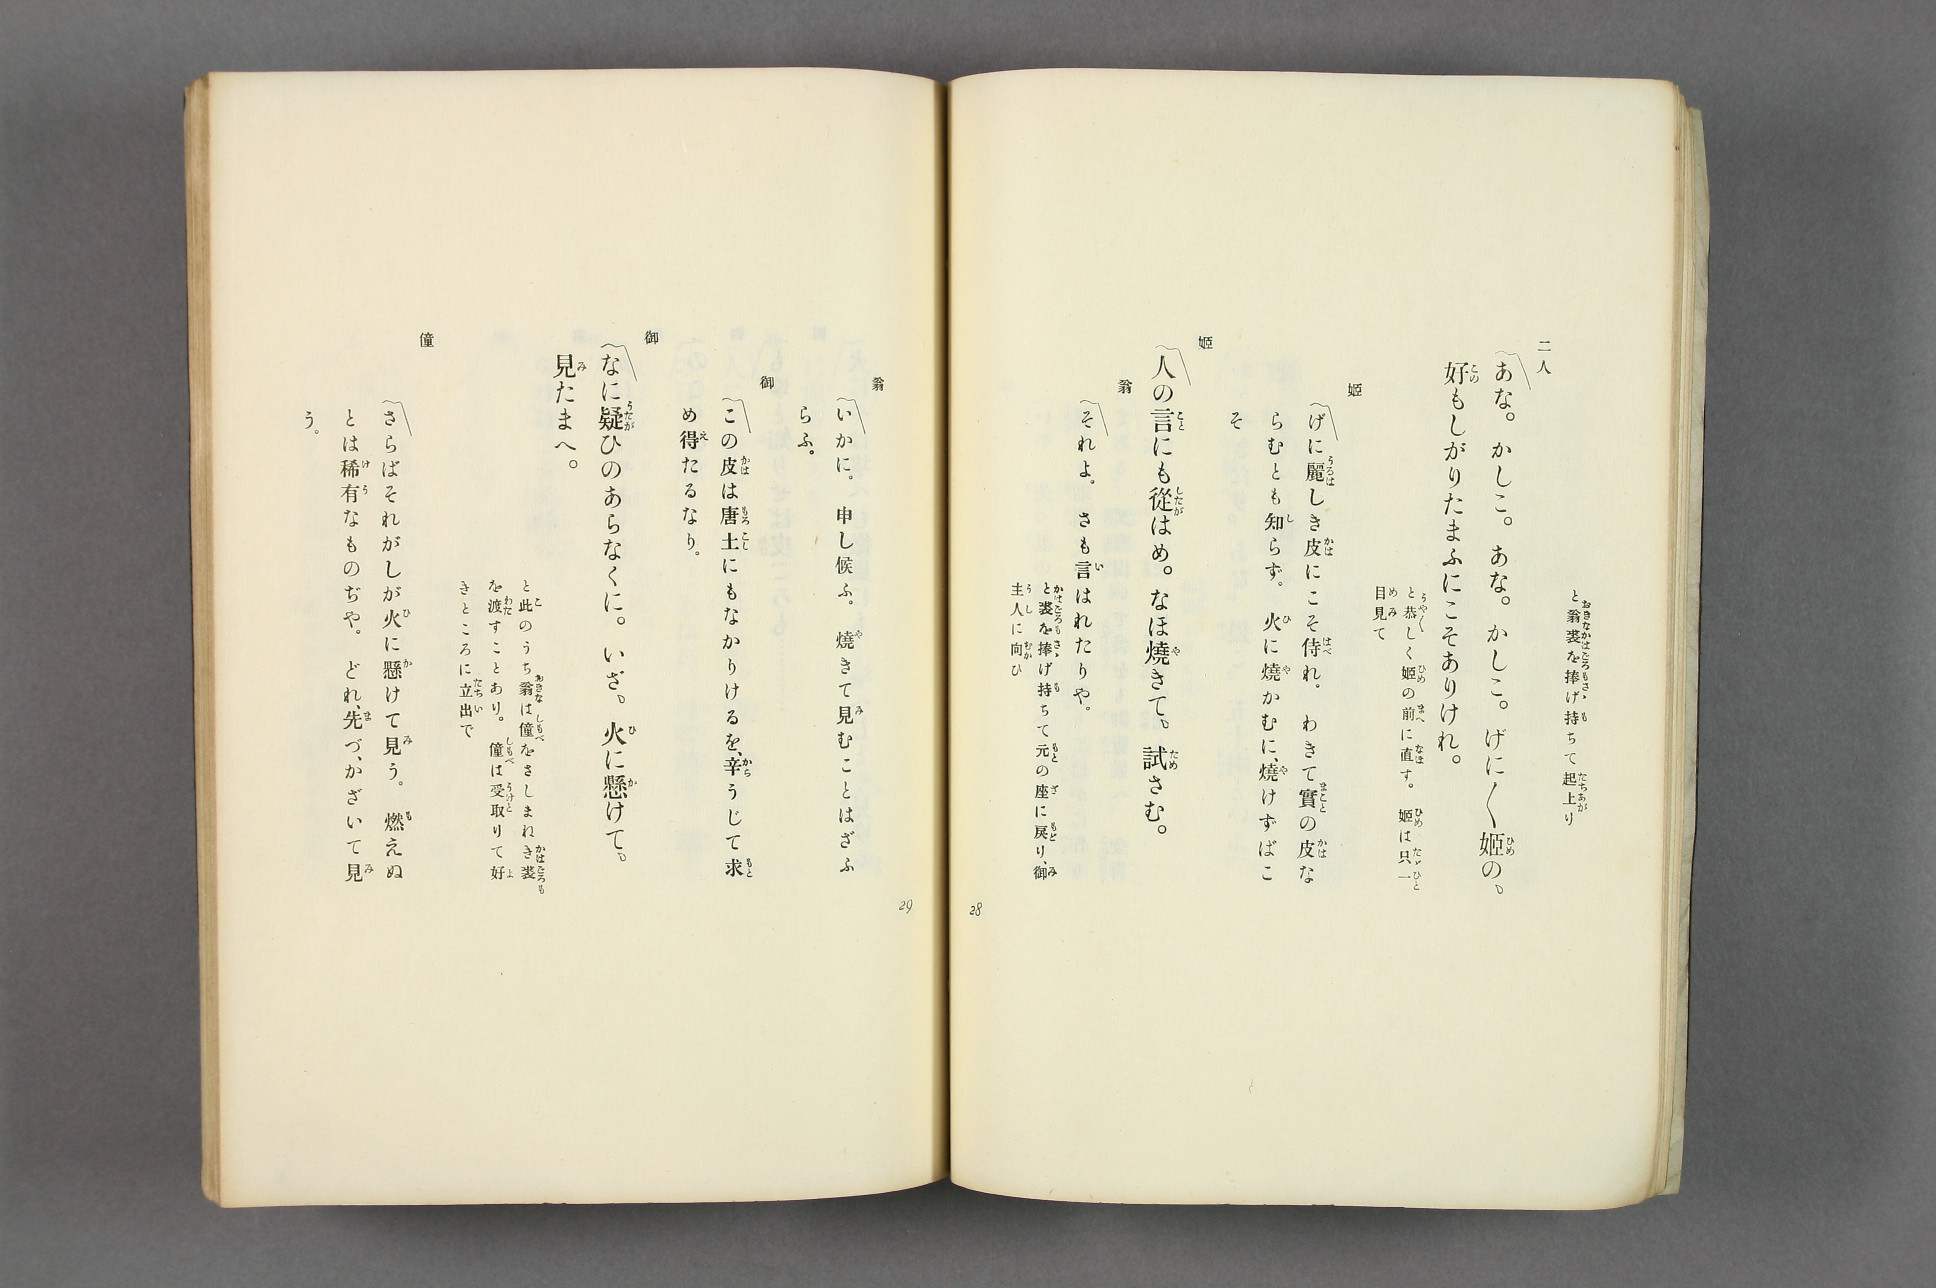 と翁裘を捧げ持ちて起上り
二人
〽あな。かしこ。あな。かしこ。げに〳〵姫の。
好もしがりたまふにこそありけれ。
と恭しく姫の前に直す。姫は只一
目見て
姫
〽げに麗しき皮にこそ侍れ。わきて實の皮な
らむとも知らず。火に燒かむに、燒けずばこ
そ
姫
〽人の言にも從はめ。なほ燒きて。試さむ。
翁
〽それよ。さも言はれたりや。
と裘を捧げ持ちて元の座に戻り、御
主人に向ひ
28
翁
〽いかに。申し候ふ。燒きて見むことはざふ
らふ。
御
〽この皮は唐土にもなかりけるを、辛うじて求
め得たるなり。
御
〽なに疑ひのあらなくに。いざ。火に懸けて。
見たまへ。
と此のうち翁は僮をさしまねき裘
を渡すことあり。僮は受取りて好
きところに立出で
僮
〽さらばそれがしが火に懸けて見う。燃えぬ
とは稀有なものぢや。どれ、先づ、かざいて見
う。
29